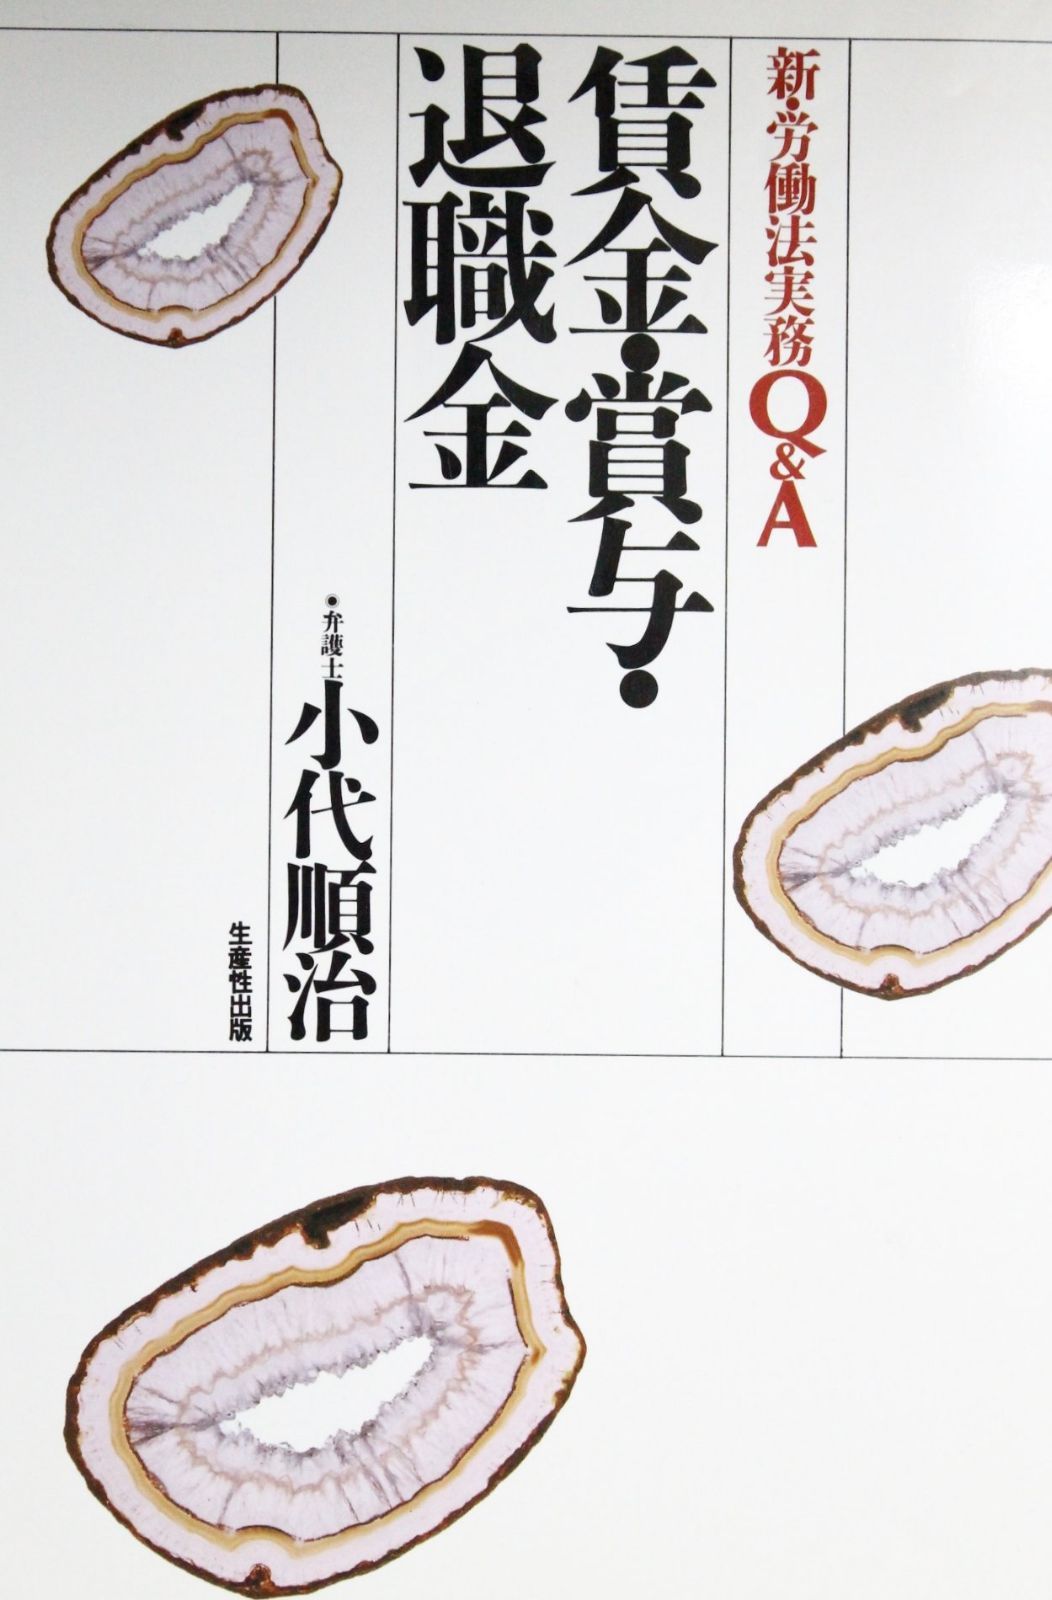 新・労働法実務Q&A
賃金・賞与・
退職金
●弁護士 小代順治
生産性出版